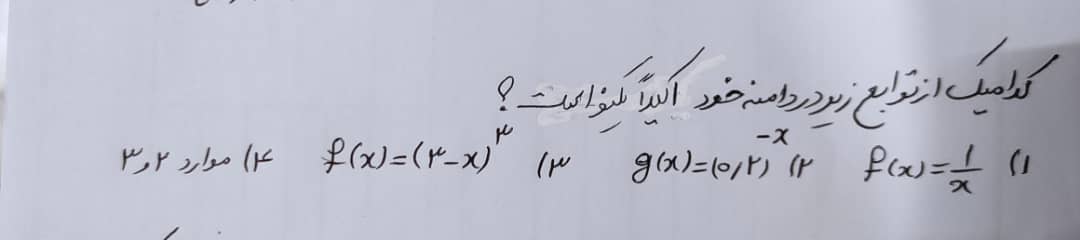 کدامیک از توابع زیر در دامنه خود اکیداً یکنواست ؟
۱) f(x)=1/x ۲) g(x)=(۰/۲)^-x ۳) f(x)=(۳-x)^۳ ۴) موارد ۲ و ۳